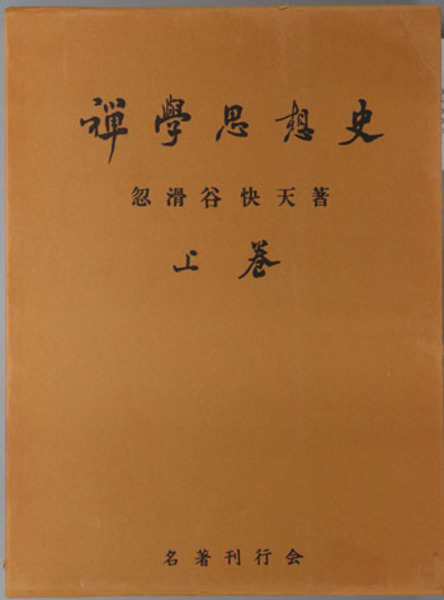 禅學思想史
忽滑谷快天著
上巻
名著刊行会